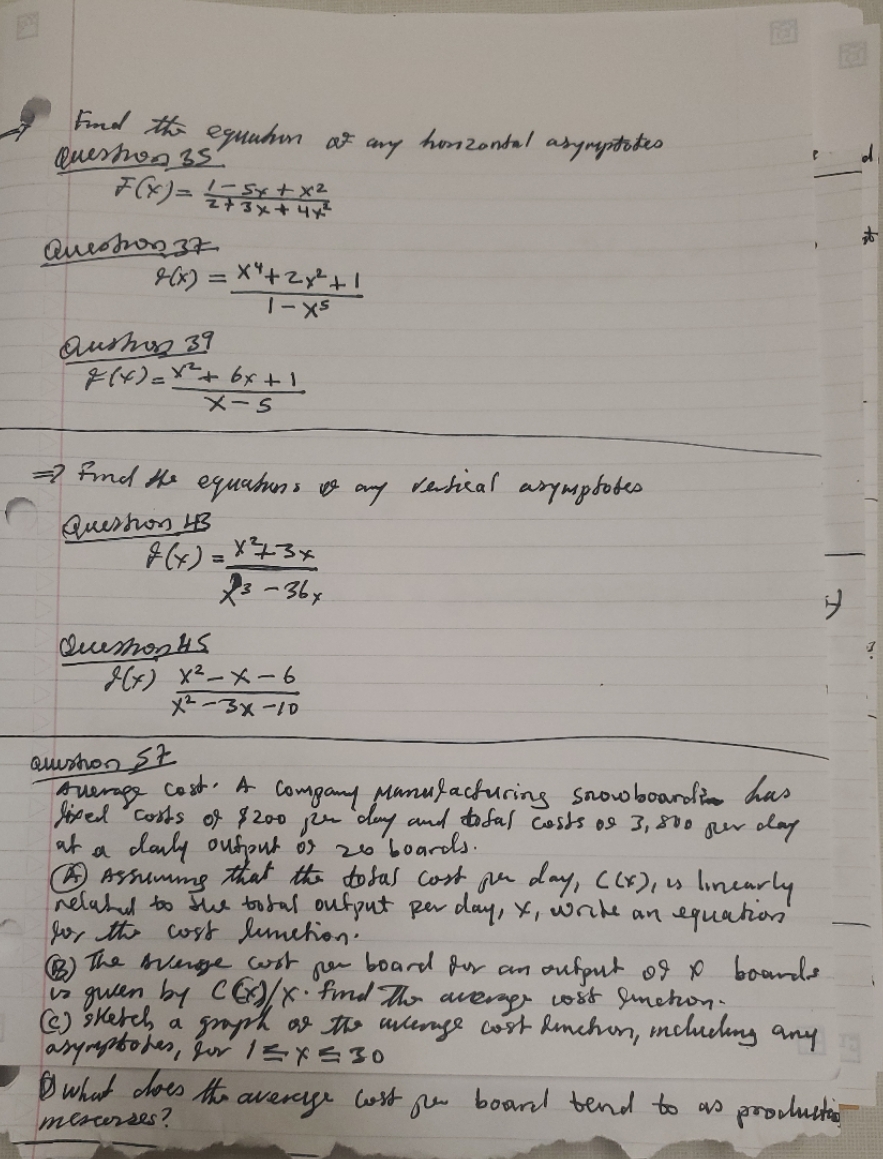 Find the equation of any horizontal asymptotes
Question 35
F(x) = (1 - 5x + x²) / (2 + 3x + 4x²)
Question 37
f(x) = (x⁴ + 2x² + 1) / (1 - x⁵)
Question 39
f(x) = (x² + 6x + 1) / (x - 5)
=> Find the equations of any vertical asymptotes
Question 43
f(x) = (x² + 3x) / (x³ - 36x)
Question 45
f(x) (x² - x - 6) / (x² - 3x - 10)
Question 57
Average cost. A company manufacturing snowboards has
fixed costs of $200 per day and total costs of 3,800 per day
at a daily output of 20 boards.
(A) Assuming that the total cost per day, C(x), is linearly
related to the total output per day, x, write an equation
for the cost function.
(B) The average cost per board for an output of x boards
is given by C(x)/x. find the average cost function.
(C) sketch a graph of the average cost function, including any
asymptotes, for 1 ≤ x ≤ 30
D what does the average cost per board tend to as production
increases?